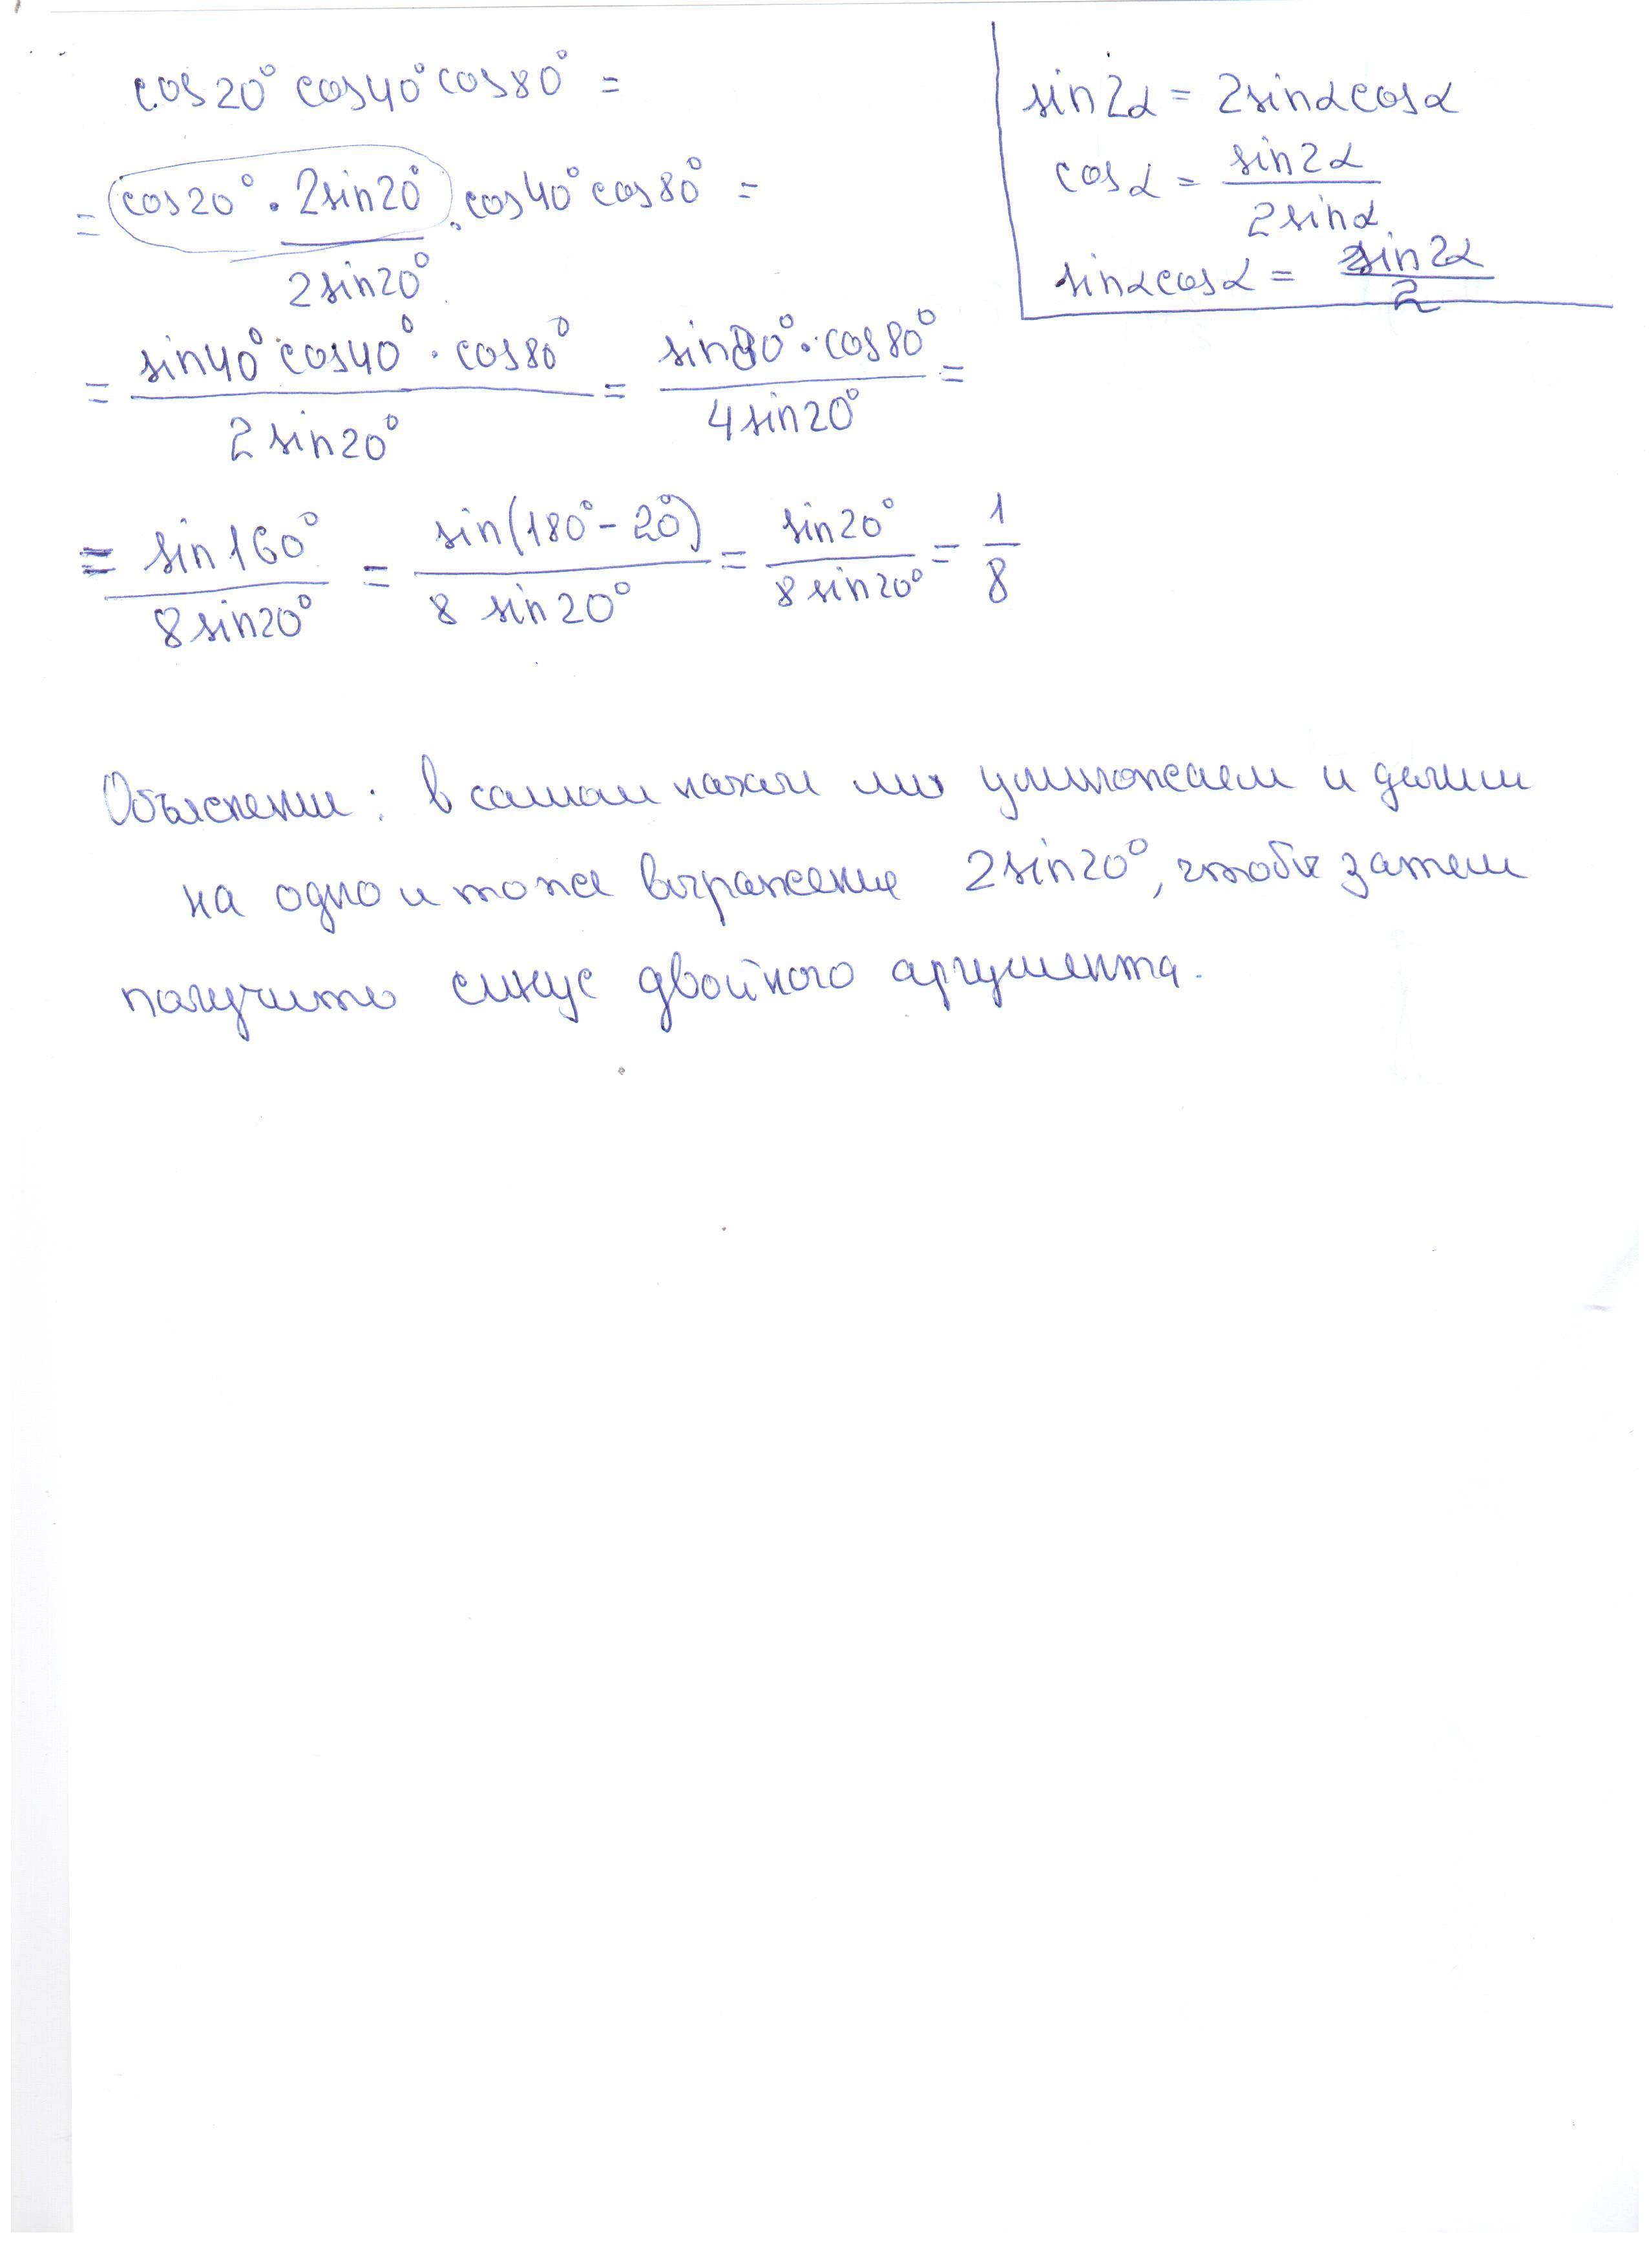 cos20° cos40° cos80° =
= cos20° · 2sin20° / 2sin20° · cos40° cos80° =
= sin40° cos40° · cos80° / 2 sin20° = sin80° · cos80° / 4sin20° =
= sin160° / 8sin20° = sin(180° - 20°) / 8 sin20° = sin20° / 8 sin20° = 1/8
sin2α = 2sinαcosα
cosα = sin2α / 2sinα
sinαcosα = sin2α / 2
Объяснение: в самом начале мы умножаем и делим
на одно и тоже выражение 2sin20°, чтобы затем
получить синус двойного аргумента.